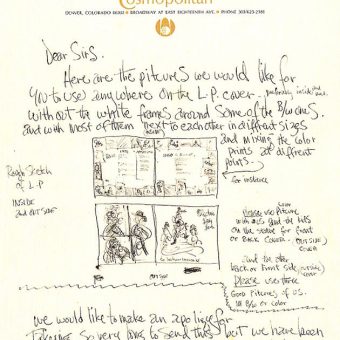 Cosmopolitan
DENVER, COLORADO 80202 • BROADWAY AT EAST EIGHTEENTH AVE. • PHONE 303/623-2181
Dear Sirs.
Here are the pitcures we would like for
you to use anywhere on the L.P. cover.
with out the white frames around some of the B/W ones.
and with most of them next to each other in diffrent sizes
and Mixing the color
prints at diffrent
points.
for instance
Rough Sketch
of L-P
INSIDE
and OUTSIDE
Please use Pitcure
with us and the kids
on the statue for front
or Back cover. OUTSIDE
COVER
and the other
back or Front side
Please use three
Good Pitcures of us.
in B/W or color
we would like to make an apoligy for
taking so very long to send this, but we have been